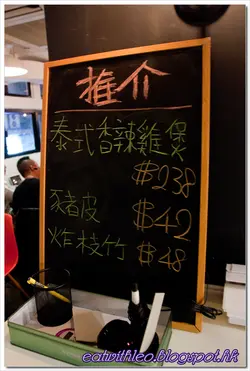 推介
泰式香辣雞煲
$238
豬皮 $42
炸枝竹 $48
eatwithleo.blogspot.hk